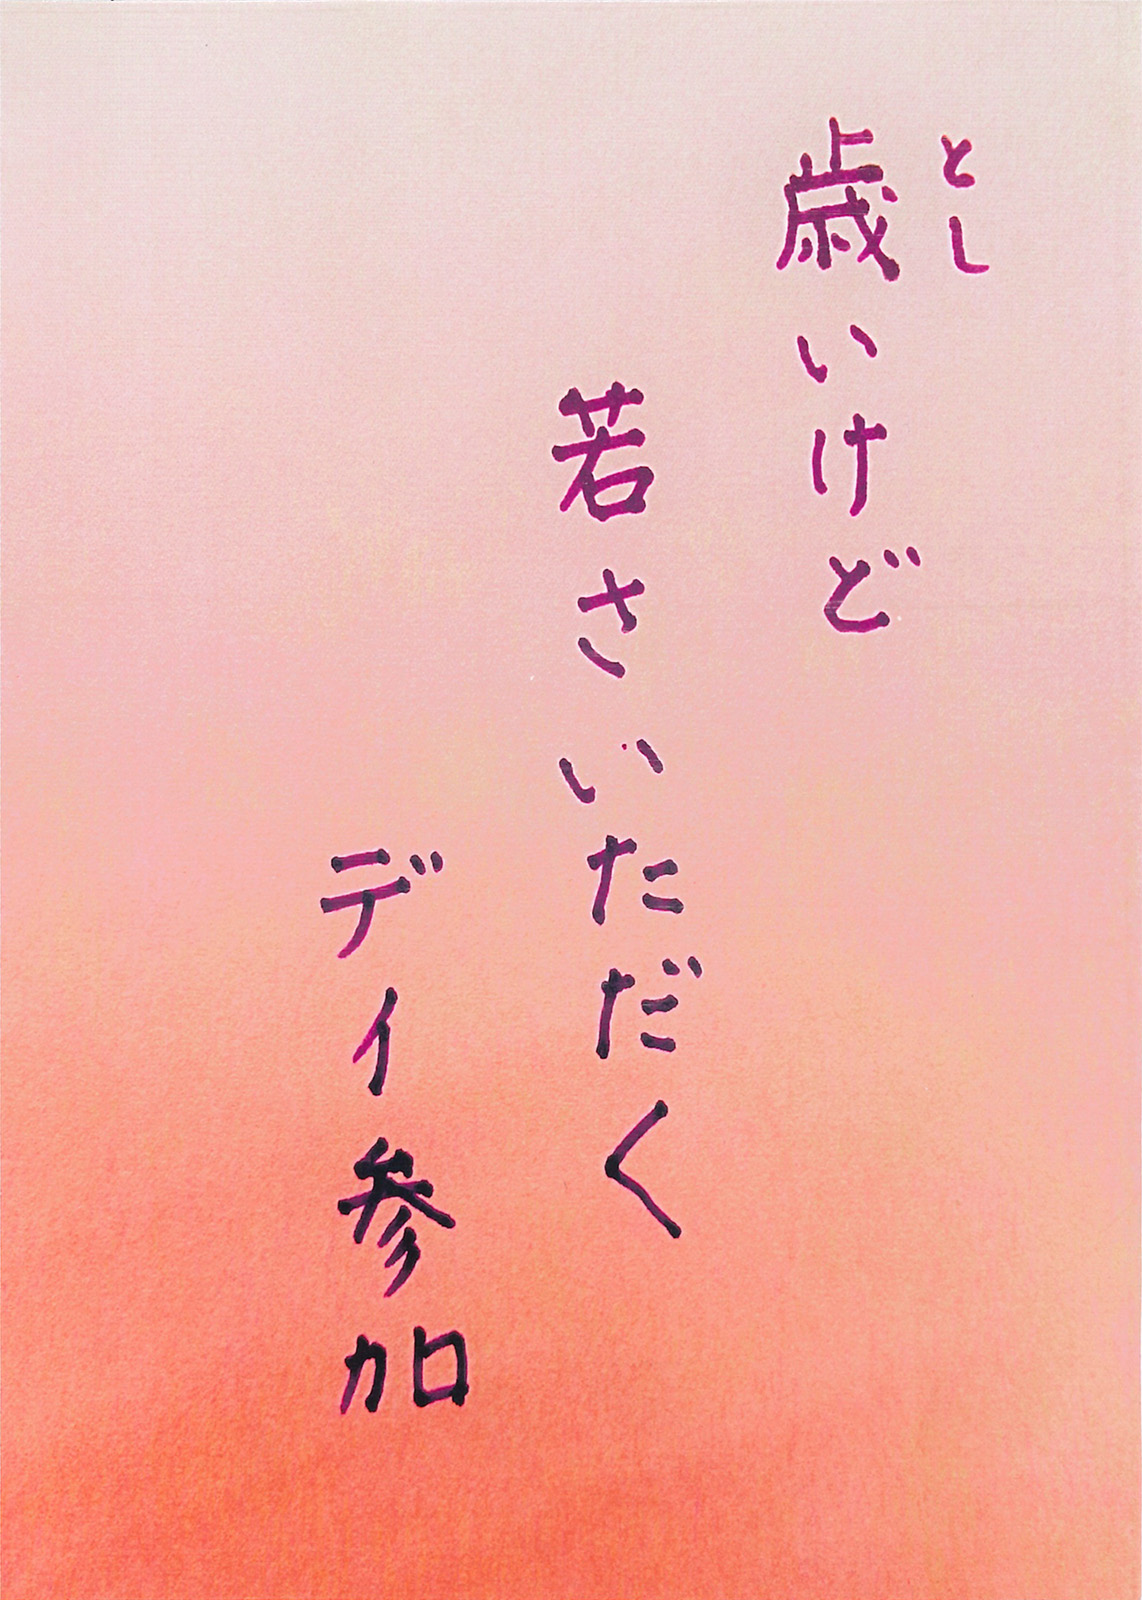 とし
歳いけど
若さいただく
デイ参加